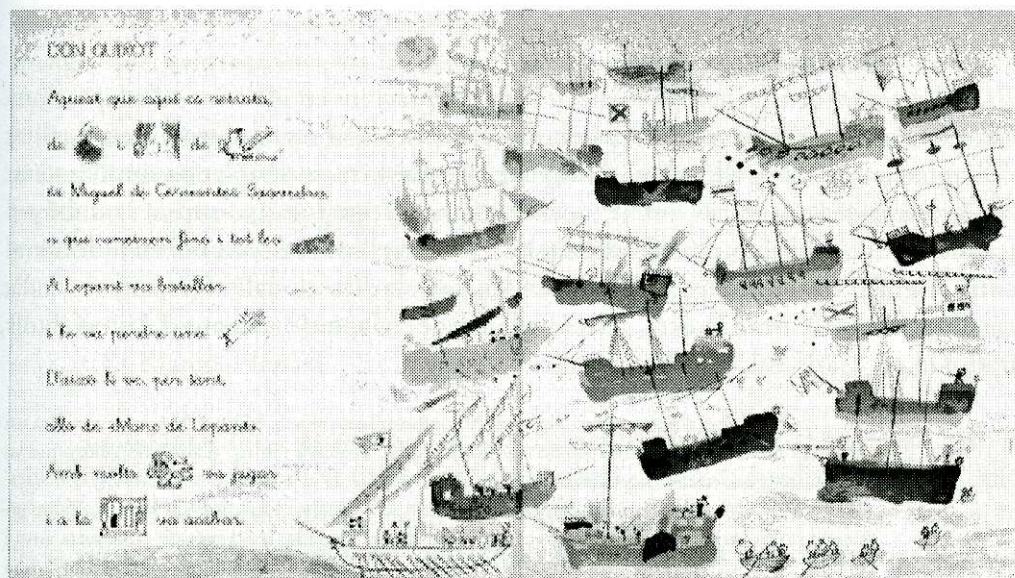 DON QUIXOT
Aquest que aquí es retrata,
de i de
és Miguel de Cervantes Saavedra,
a que coneixen fins i tot les
A Lepant va batallar
i hi va perdre una
D'això li ve, per tant,
allò de «Manc de Lepant».
Amb molta va jugar
i a la va acabar.